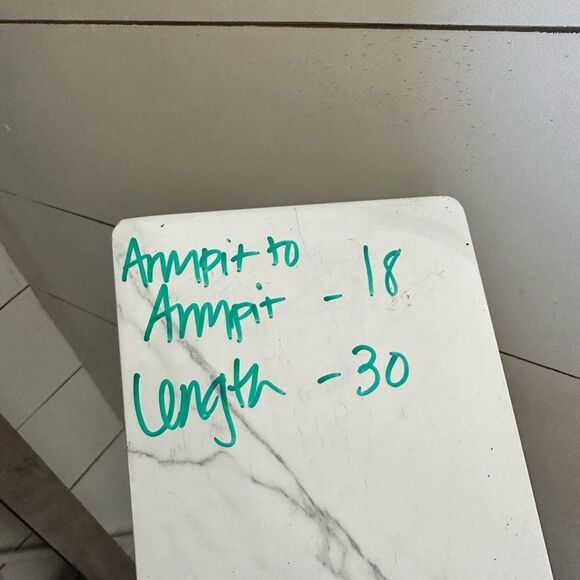 Armpit to
Armpit - 18
Length - 30